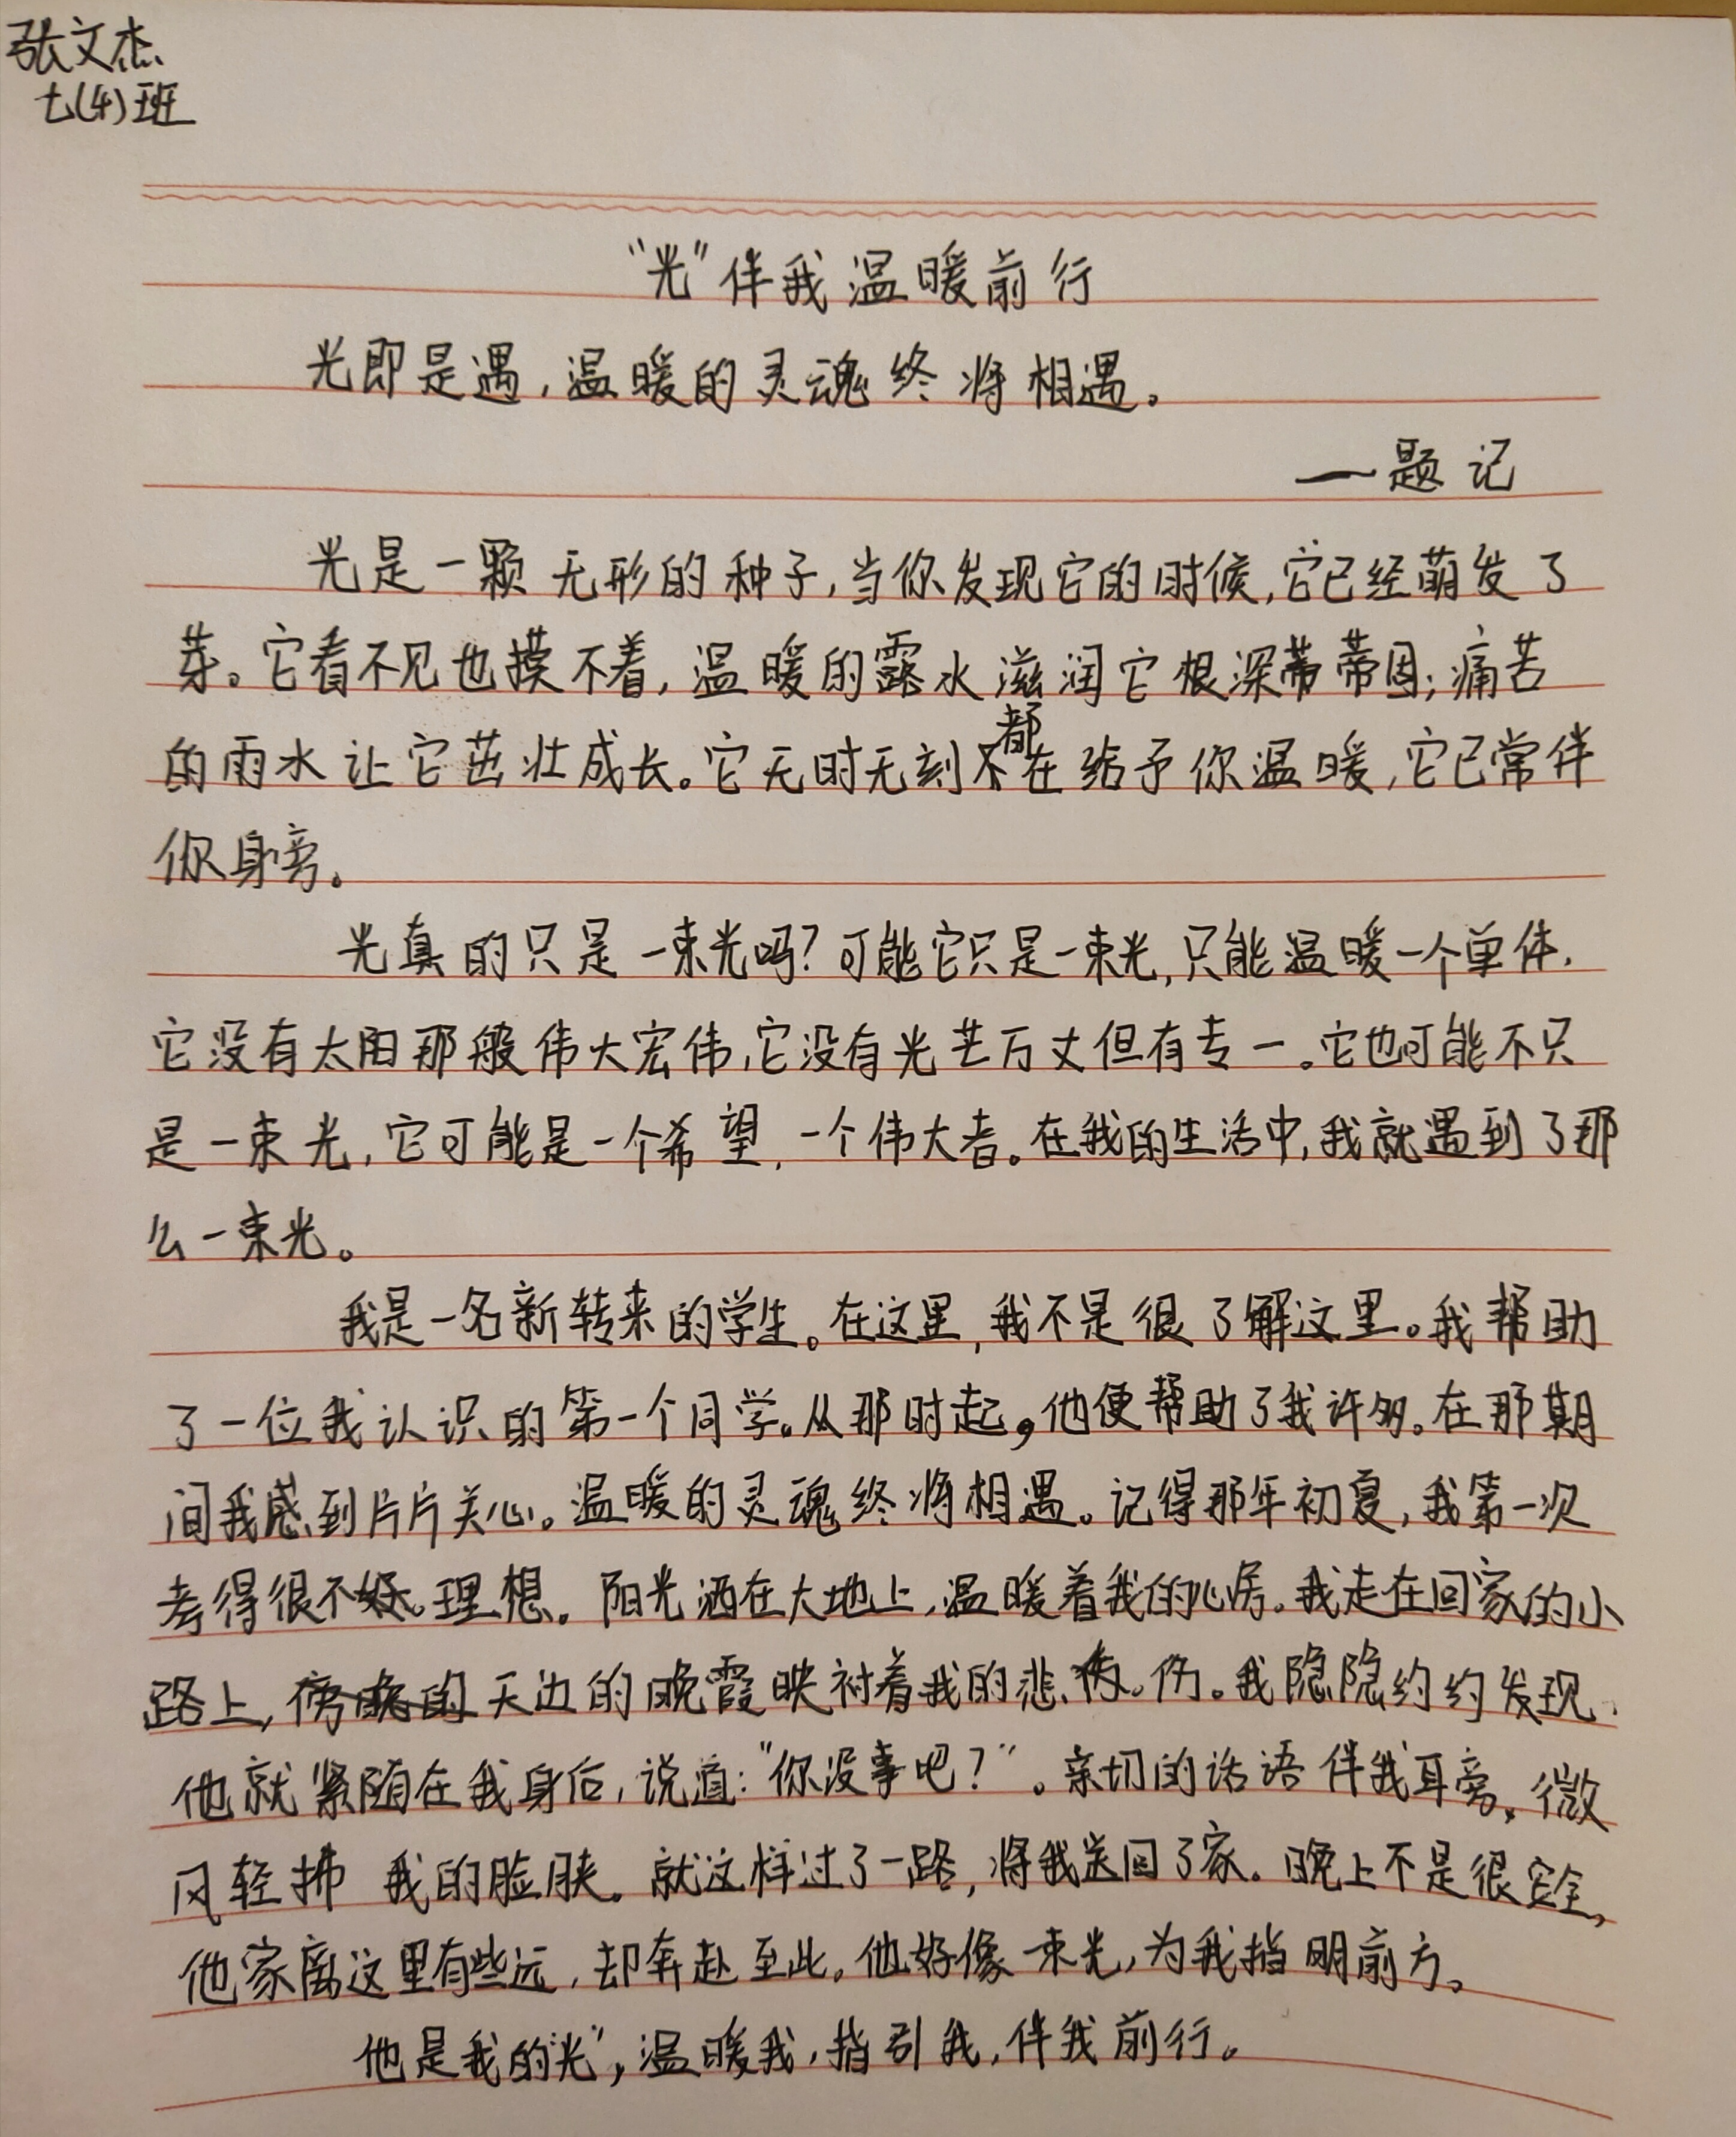 张文杰
七(4)班
“光”伴我温暖前行
光即是遇,温暖的灵魂终将相遇。
——题记
光是一颗无形的种子,当你发现它的时候,它已经萌发了
芽。它看不见也摸不着,温暖的露水滋润它根深蒂固;痛苦
的雨水让它茁壮成长。它无时无刻都在给予你温暖,它已常伴
你身旁。
光真的只是一束光吗?可能它只是一束光,只能温暖一个单体.
它没有太阳那般伟大宏伟,它没有光芒万丈但有专一。它也可能不只
是一束光,它可能是一个希望,一个伟大者。在我的生活中,我就遇到了那
么一束光。
我是一名新转来的学生。在这里,我不是很了解这里。我帮助
了一位我认识的第一个同学。从那时起,他便帮助了我许多。在那期
间我感到片片关心。温暖的灵魂终将相遇。记得那年初夏,我第一次
考得很不理想。阳光洒在大地上,温暖着我的心房。我走在回家的小
路上,天边的晚霞映衬着我的悲伤。我隐隐约约发现.
他就紧随在我身后,说道:“你没事吧?”。亲切的话语伴我耳旁,微
风轻拂我的脸颊。就这样过了一路,将我送回了家。晚上不是很安全,
他家离这里有些远,却奔赴至此。他好像一束光,为我指明前方。
他是我的“光”,温暖我,指引我,伴我前行。